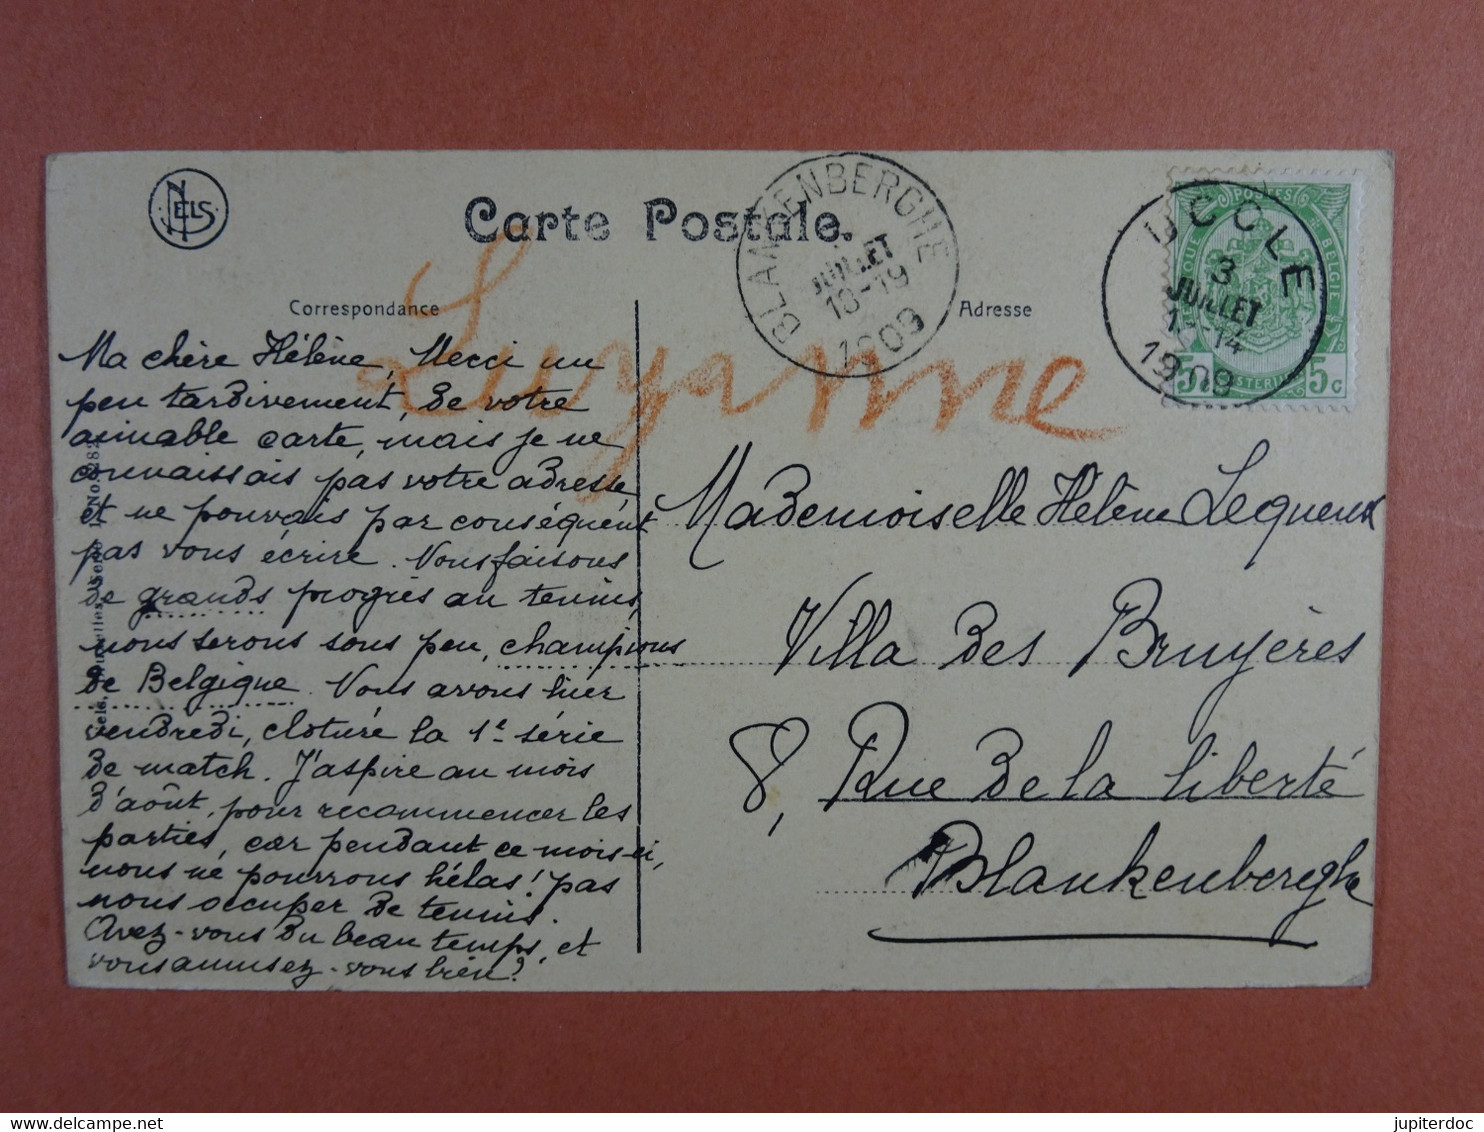 NELS
Carte Postale.
BLANKENBERGHE
JUILLET
18-19
1909
UCCLE
3
JUILLET
14
1909
POSTES
BELGIE
5 5c
Correspondance
Adresse
Suzanne
Ma chère Hélène, Merci un
peu tardivement, de votre
aimable carte, mais je ne
connaissais pas votre adresse
et ne pouvais par conséquent
pas vous écrire. Nous faisons
de grands progrès au tennis,
nous serons sous peu, champions
de Belgique. Nous avons hier
vendredi, cloturé la 1e série
de match. J'aspire au mois
d'août, pour recommencer les
parties, car pendant ce mois-ci,
nous ne pourrons hélas! pas
nous occuper de tennis.
Avez-vous du beau temps, et
vous amusez-vous bien?
Mademoiselle Hélène Lequeux
Villa des Bruyères
8, Rue de la liberté
Blankenberghe
jupiterdoc